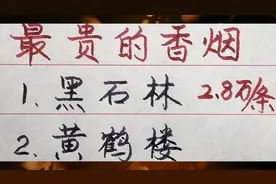 最贵的香烟
1.黑石林 2.8万/条
2.黄鹤楼